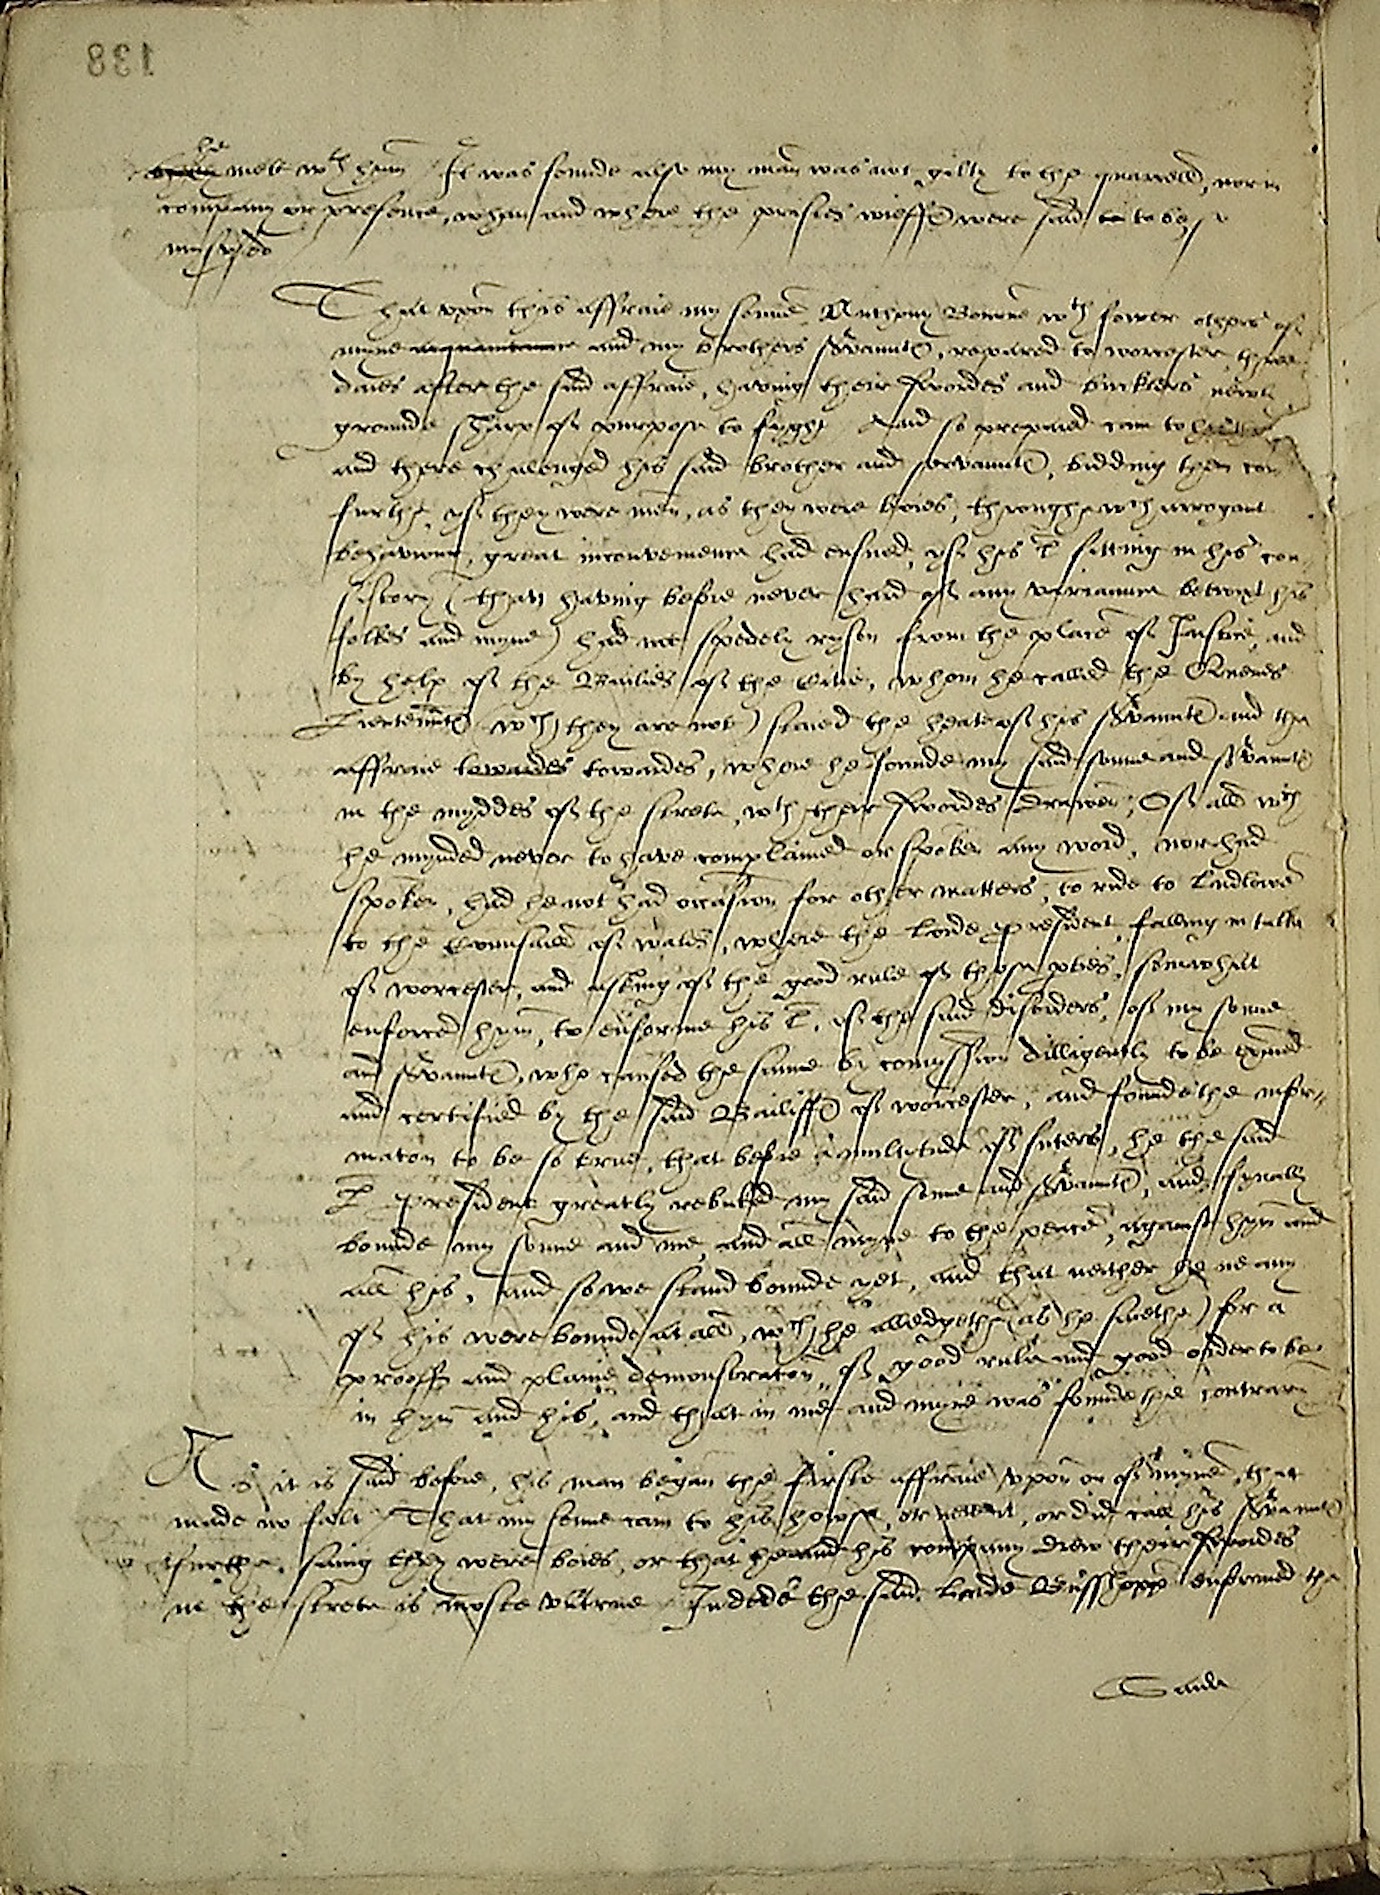 he
met wth hym It was founde also my man was not gilty to the quarrell, nor in
company or presence, whan and where the prestes wieffes were said to be so
mysused
That upon this affraie my sonne Anthony Bourne wth fower others of
myne acquaintaunce and my brothers servauntes, repared to worcester three
daies after the said affraie, having their swordes and bucklers newly
grounde sharp of purpose to fyght And so prepared cam to
and there chalenged his said brother and servauntes, bidding then com
furthe, yf they were men, as they were boies, throughe wch arrogant
behaviour, great inconvenience had ensued, yf his L sitting in his con-
sistory (than having before never hard of any variaunce betwixt his
folkes and myne) had not spedely rysen from the place of Justice, and
by help of the Bailies of the Citie, whom he called the Quenes
Lieutenntes (wch they are not) staied the heate of his servauntes and the
affraie towardes towardes, where he founde my said sonne and servauntes
in the myddes of the strete, wth their swordes drawen, Of all wch
he mynded never to have complained or spoken any word, nor had
spoken, had he not had occasion for other matters, to ride to Ludlowe
to the Counsaill of wales, where the Lorde president, falling in talke
of worcester, and asking of the good rule of those pties, somwhat
enforced hym, to enforme his L. of the said disorders, of my sonne
and servauntes, who caused the same by comyssion dilligently to be exmed
and certified by the said Bailiffes of worcester, and founde the infor-
macon to be so true, that before a multytude of suters, he the said
L president greatly rebuked my said sonne and servauntes, and fynally
bounde my sonne and me, and all myne to the peace, against hym and
all his, And so we stand bounde yet, and that neither he ne any
of his were bounde at all, wch he alledgethe (as he saiethe) for a
prooffe and plaine demonstracon, of good rule and good order to be
in hym and his, and that in me and myne was founde the contrary
As it is said before, his man began the firste affraie upon on of myne, that
made no falt That my sonne cam to his howse, or went, or did call his servauntes
furthe, saing they were boies, or that he and his company drew their swordes
in the strete is moste untrue Indede the said Lorde Busshopp enformed the
138